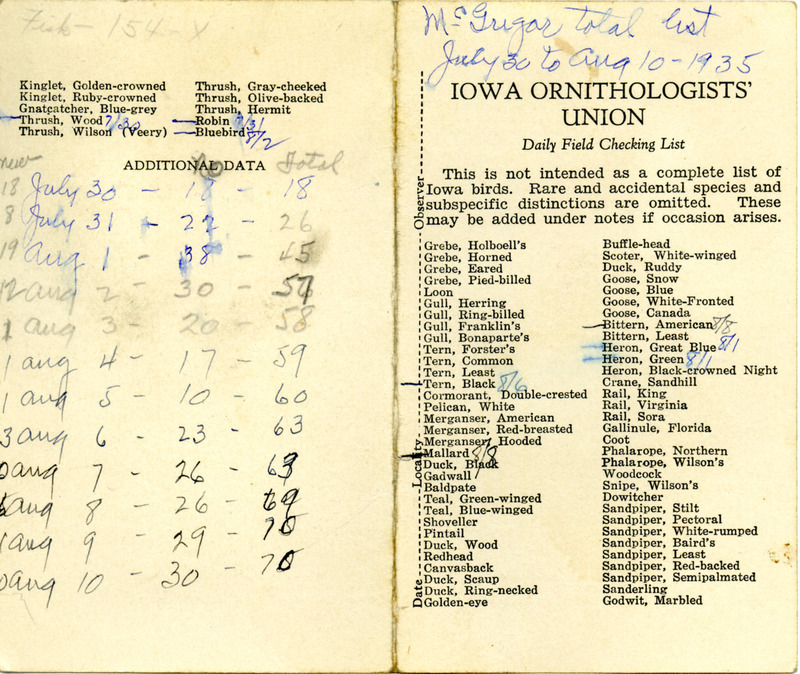 Fish - 154
Kinglet, Golden-crowned
Kinglet, Ruby-crowned
Gnatcatcher, Blue-grey
Thrush, Wood 7/30
Thrush, Wilson (Veery)
Thrush, Gray-cheeked
Thrush, Olive-backed
Thrush, Hermit
Robin 7/31
Bluebird 8/2
ADDITIONAL DATA
new No Total
18 July 30 - 18 - 18
8 July 31 - 22 - 26
19 Aug 1 - 38 - 45
12 Aug 2 - 30 - 57
1 Aug 3 - 20 - 58
1 Aug 4 - 17 - 59
1 Aug 5 - 10 - 60
3 Aug 6 - 23 - 63
0 Aug 7 - 26 - 63
Aug 8 - 26 - 69
1 Aug 9 - 29 - 70
0 Aug 10 - 30 - 70
McGrigor total list
July 30 to Aug 10 - 1935
IOWA ORNITHOLOGISTS'
UNION
Daily Field Checking List
This is not intended as a complete list of
Iowa birds. Rare and accidental species and
subspecific distinctions are omitted. These
may be added under notes if occasion arises.
Date Locality Observer
Grebe, Holboell's
Grebe, Horned
Grebe, Eared
Grebe, Pied-billed
Loon
Gull, Herring
Gull, Ring-billed
Gull, Franklin's
Gull, Bonaparte's
Tern, Forster's
Tern, Common
Tern, Least
Tern, Black 8/6
Cormorant, Double-crested
Pelican, White
Merganser, American
Merganser, Red-breasted
Merganser, Hooded
Mallard 8/8
Duck, Black
Gadwall
Baldpate
Teal, Green-winged
Teal, Blue-winged
Shoveller
Pintail
Duck, Wood
Redhead
Canvasback
Duck, Scaup
Duck, Ring-necked
Golden-eye
Buffle-head
Scoter, White-winged
Duck, Ruddy
Goose, Snow
Goose, Blue
Goose, White-Fronted
Goose, Canada
Bittern, American 8/8
Bittern, Least
Heron, Great Blue 8/1
Heron, Green 8/1
Heron, Black-crowned Night
Crane, Sandhill
Rail, King
Rail, Virginia
Rail, Sora
Gallinule, Florida
Coot
Phalarope, Northern
Phalarope, Wilson's
Woodcock
Snipe, Wilson's
Dowitcher
Sandpiper, Stilt
Sandpiper, Pectoral
Sandpiper, White-rumped
Sandpiper, Baird's
Sandpiper, Least
Sandpiper, Red-backed
Sandpiper, Semipalmated
Sanderling
Godwit, Marbled